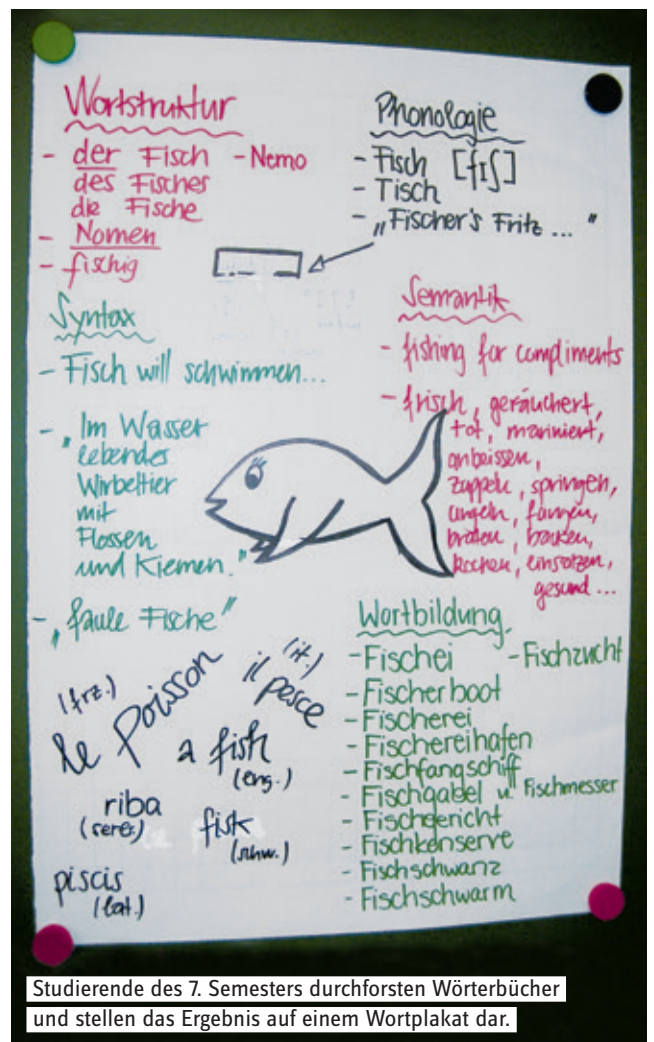 Wortstruktur
- der Fisch - Nemo
des Fisches
die Fische
- Nomen
- fischig
Phonologie
- Fisch [fɪʃ]
- Tisch
- „Fischer's Fritz ... "
Syntax
- Fisch will schwimmen...
- „Im Wasser
lebendes
Wirbeltier
mit
Flossen
und Kiemen."
- „faule Fische"
Semantik
- fishing for compliments
- frisch, geräuchert,
tot, mariniert,
anbeissen,
zappeln, springen,
angeln, fangen,
braten, backen,
kochen, einsalzen,
gesund...
(frz.)
le poisson
(it.)
il pesce
a fish
(eng.)
riba
(serb.)
fisk
(schw.)
piscis
(lat.)
Wortbildung
- Fischei - Fischzucht
- Fischerboot
- Fischerei
- Fischereihafen
- Fischfangschiff
- Fischgabel u. Fischmesser
- Fischgericht
- Fischkonserve
- Fischschwanz
- Fischschwarm
Studierende des 7. Semesters durchforsten Wörterbücher
und stellen das Ergebnis auf einem Wortplakat dar.